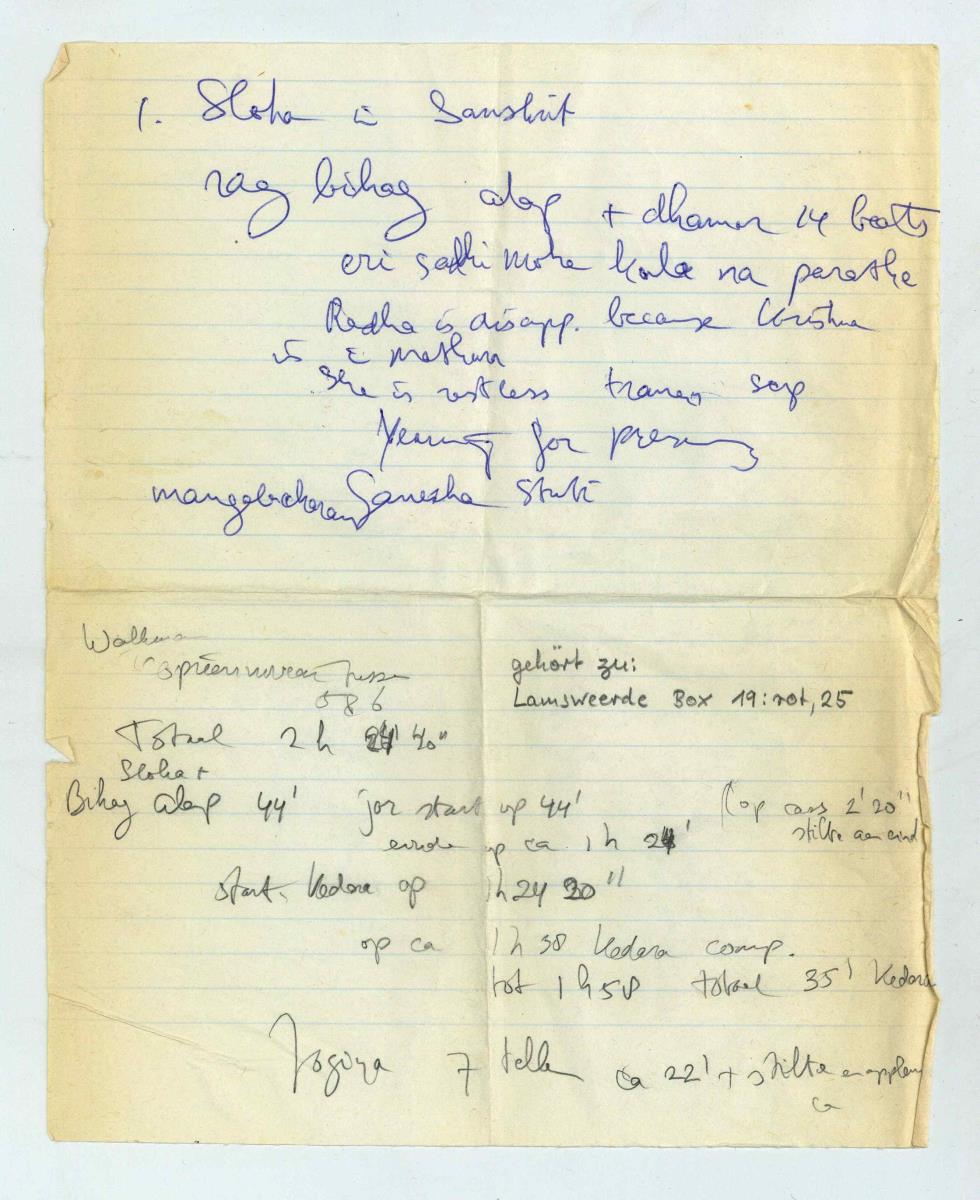 1. Sloka in Sanskrit
rag bihag alap + dhamar 14 beats
eri sakhi mohe kala na parathe
Radha is disapp. because Krishna
is in mathura
She is restless
Yearning for
mangalacharan Ganesha Stuti
Walkman
gehört zu:
Lamsweerde Box 19: rot, 25
Totaal 2 h 40"
Sloka +
Bihag alap 44' jor start op 44' (op cass 2'20"
stilte aan eind
einde op ca 1 h 24'
start Kedara op 1h 24 30"
op ca 1 h 38 Kedara comp.
tot 1 h 58 totaal 35' Kedara
Jogiya 7 tellen ca 22' + stilte en applaus
ca